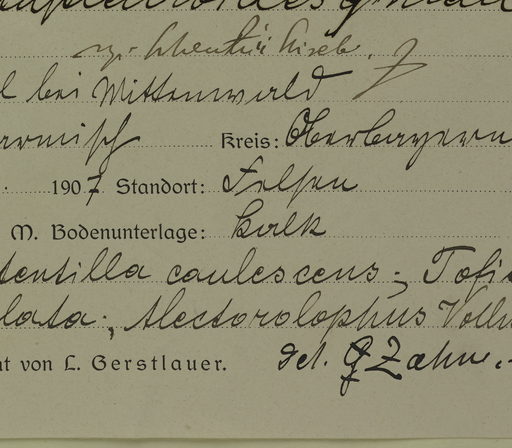 l bei Mittenwald
armisch Kreis: Oberbayern
1907 Standort: Felsen
M. Bodenunterlage: Kalk
tentilla caulescens; Tofi
lata; Alectorolophus Volln
nt von L. Gerstlauer. det. Zahn.